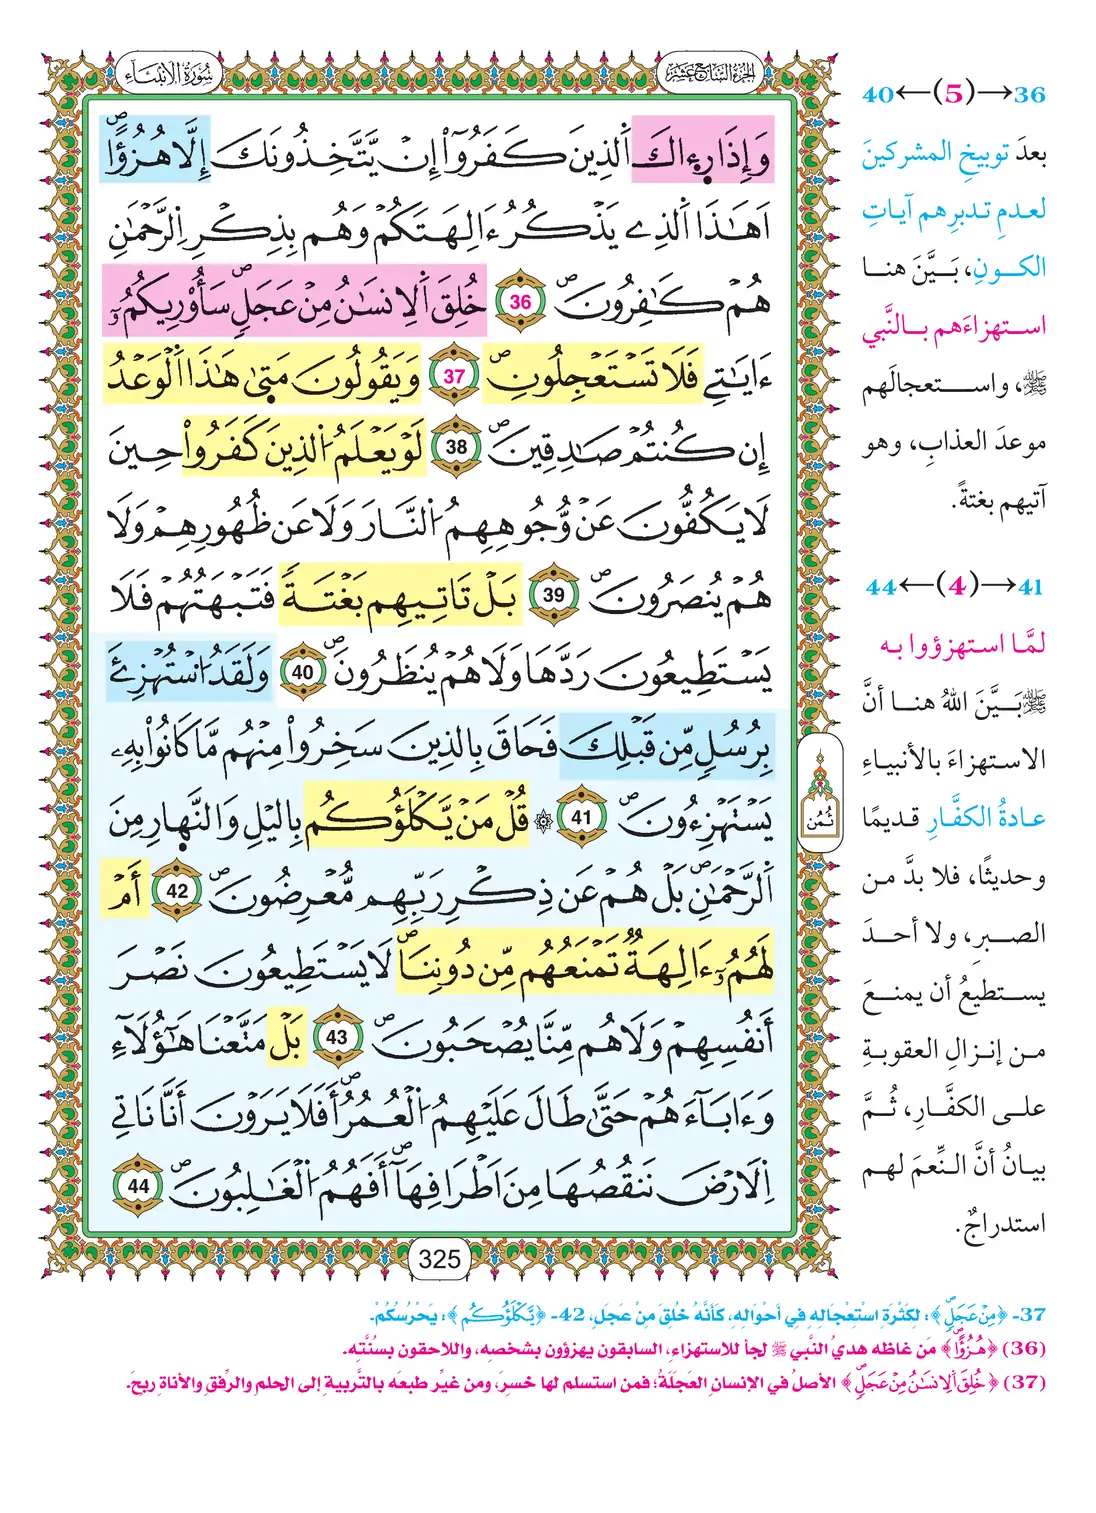 سُورَةُ الأنبيَاءِ
الجزء السابع عشر
وَإِذَا رِءَاكَ اَ۬لذِينَ كَفَرُوٓاْ إِنْ يَّتَّخِذُونَكَ إِلَّا هُزُؤاًۖ
اَهَٰذَا اَ۬لذِے يَذْكُرُ ءَالِهَتَكُمْ وَهُم بِذِكْرِ اِ۬لرَّحْمَٰنِ
هُمْ كَٰفِرُونَۖ 36 خُلِقَ اَ۬لِانسَٰنُ مِنْ عَجَلٍۖ سَأُوْرِيكُمُۥٓ
ءَايَٰتِے فَلَا تَسْتَعْجِلُونِۖ 37 وَيَقُولُونَ مَتَىٰ هَٰذَا اَ۬لْوَعْدُ
إِن كُنتُمْ صَٰدِقِينَۖ 38 لَوْ يَعْلَمُ اُ۬لذِينَ كَفَرُواْ حِينَ
لَا يَكُفُّونَ عَنْ وُّجُوهِهِمُ اُ۬لنَّارَ وَلَا عَن ظُهُورِهِمْ وَلَا
هُمْ يُنصَرُونَۖ 39 بَلْ تَاتِيهِم بَغْتَةً فَتَبْهَتُهُمْ فَلَا
يَسْتَطِيعُونَ رَدَّهَا وَلَا هُمْ يُنظَرُونَۖ 40 وَلَقَدُ اُ۟سْتُهْزِۓَ
بِرُسُلٍ مِّن قَبْلِكَ فَحَاقَ بِالذِينَ سَخِرُواْ مِنْهُم مَّا كَانُواْ بِهِۦ
يَسْتَهْزِءُونَۖ 41 ۞ قُلْ مَنْ يَّكْلَؤُكُم بِاليْلِ وَالنَّهارِ مِنَ
اَ۬لرَّحْمَٰنِۖ بَلْ هُمْ عَن ذِكْرِ رَبِّهِم مُّعْرِضُونَۖ 42 أَمْ
لَهُمُۥٓ ءَالِهَةٌ تَمْنَعُهُم مِّن دُونِنَاۖ لَا يَسْتَطِيعُونَ نَصْرَ
أَنفُسِهِمْ وَلَا هُم مِّنَّا يُصْحَبُونَۖ 43 بَلْ مَتَّعْنَا هَٰٓؤُلَآءِ
وَءَابَآءَهُمْ حَتَّىٰ طَالَ عَلَيْهِمُ اُ۬لْعُمُرُۖ أَفَلَا يَرَوْنَ أَنَّا نَاتِے
اِ۬لَارْضَ نَنقُصُهَا مِنَ اَطْرَافِهَآۖ أَفَهُمُ اُ۬لْغَٰلِبُونَۖ 44
ثُمُن
325
36→(5)←40
بعدَ توبيخِ المشركينَ
لعدمِ تدبرِهم آياتِ
الكونِ، بَيَّنَ هنا
استهزاءَهم بالنَّبي
ﷺ، واستعجالَهم
موعدَ العذابِ، وهو
آتيهم بغتةً.
41→(4)←44
لمَّا استهزؤوا به
ﷺ بَيَّنَ اللهُ هنا أنَّ
الاستهزاءَ بالأنبياءِ
عادةُ الكفَّارِ قديمًا
وحديثًا، فلا بدَّ من
الصبرِ، ولا أحدَ
يستطيعُ أن يمنعَ
من إنزالِ العقوبةِ
على الكفَّارِ، ثُمَّ
بيانُ أنَّ النِّعمَ لهم
استدراجٌ.
37- ﴿مِنْ عَجَلٍۖ﴾: لِكَثْرَةِ اسْتِعْجَالِهِ فِي أَحْوَالِهِ، كَأَنَّهُ خُلِقَ مِنْ عَجَلٍ، 42- ﴿يَّكْلَؤُكُم﴾: يَحْرُسُكُمْ.
(36) ﴿هُزُؤاًۖ﴾ مَن غاظه هديُ النَّبي ﷺ لجأ للاستهزاءِ، السابقون يهزؤون بشخصِه، واللاحقون بسُنَّتِه.
(37) ﴿خُلِقَ اَ۬لِانسَٰنُ مِنْ عَجَلٍۖ﴾ الأصلُ في الإنسانِ العَجَلةُ؛ فمن استسلم لها خسِرَ، ومن غيَّر طبعَه بالتَّربيةِ إلى الحلمِ والرِّفقِ والأناةِ ربحَ.